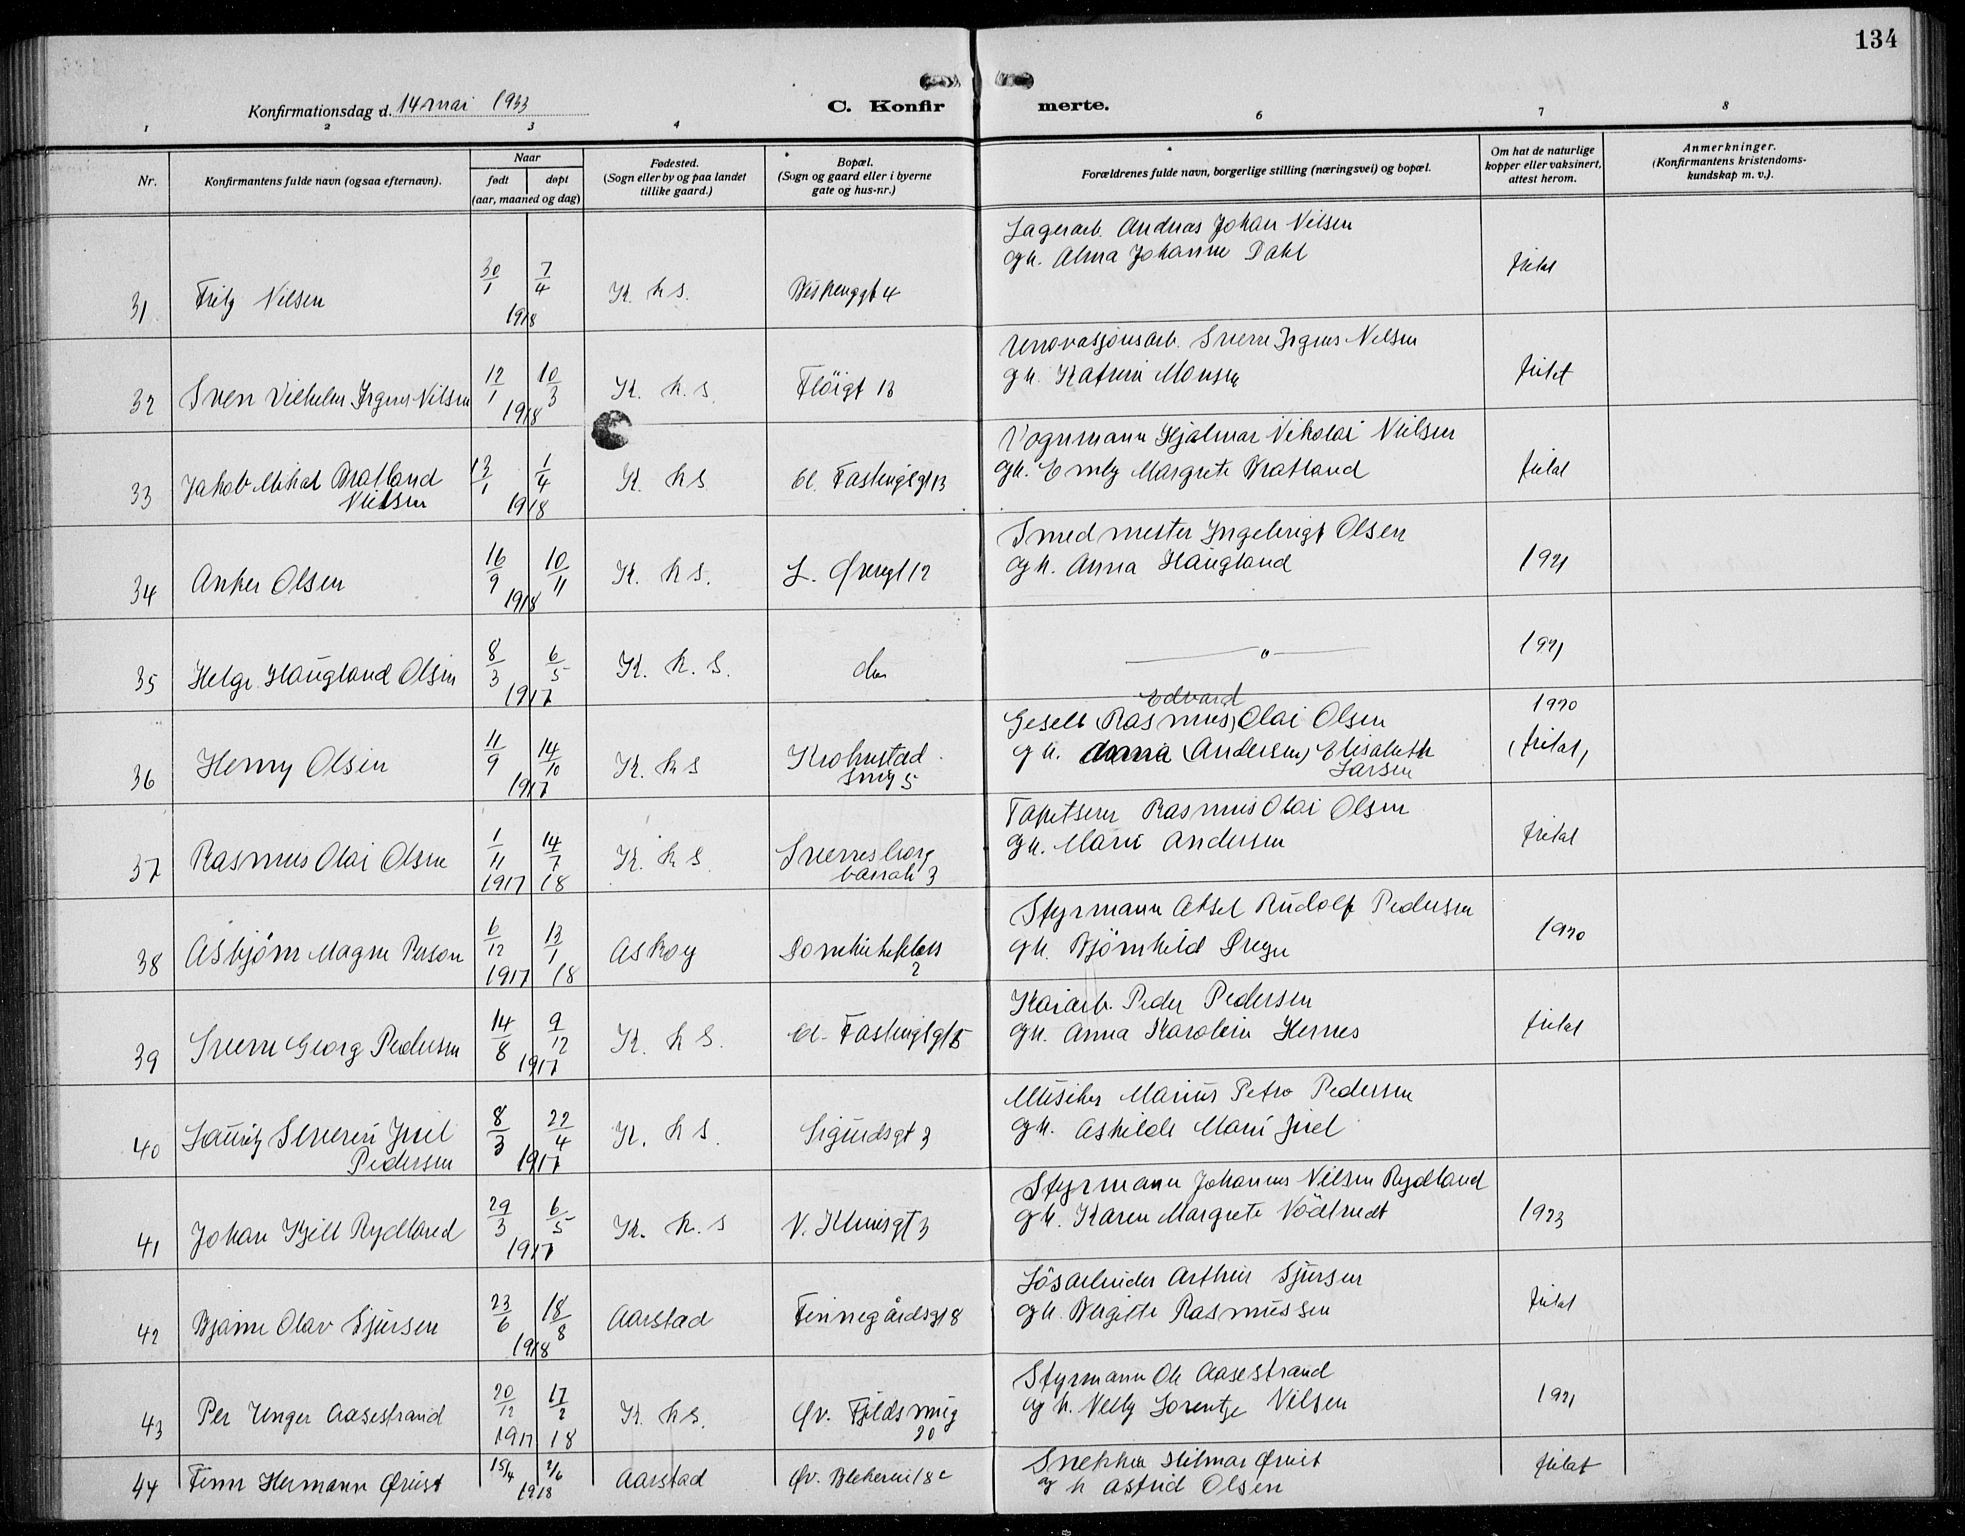 134
Konfirmationsdag d. 14 mai 1933
C. Konfirmerte.
1 2 3 4 5 6 7 8
Nr.
Konfirmantens fulde navn (ogsaa efternavn).
Naar
født døpt
(aar, maaned og dag)
Fødested.
(Sogn eller by og paa landet
tillike gaard.)
Bopæl.
(Sogn og gaard eller i byerne
gate og hus-nr.)
Forældrenes fulde navn, borgerlige stilling (næringsvei) og bopæl.
Om hat de naturlige
kopper eller vaksinert,
attest herom.
Anmerkninger.
(Konfirmantens kristendoms-
kundskap m. v.).
31 Fritz Nilsen 30/1 7/4 1918 K. k s. 4
Lagerarb. Andreas Johan Nilsen
og h. Alma Johanne Dahl
fritat
32 Sverr Vilhelm Irgens Nilsen 12/1 10/3 1918 K. k. s. Fløigt 13
Renovasjonsarb. Sverre Irgens Nilsen
og h. Katrine Monsen
fritat
33 Jakob Mikal Bratland
Nielsen 13/1 1/4 1918 K. k s. Cl. Fastingsgt 13
Vognmann Hjalmar Nikolai Nielsen
og h. Emly Margrete Bratland
fritat
34 Anker Olsen 16/9 10/11 1918 K. k s. L. Øvregt 12
Smedmester Ingebrigt Olsen
og h. Anna Haugland
1921
35 Helge Haugland Olsen 8/3 6/5 1917 K. k. s. do
—— " ——
1921
36 Henry Olsen 11/9 14/10 1917 K. k s Krohnstad
smg 5
Edvard
Gesell (Rasmus) Olai Olsen
og h. Anna (Andersen) Elisabeth
Larsen
1920
(fritat)
37 Rasmus Olai Olsen 1/11 14/7 1917 18 K. k s Sverresborg
barrak 3
Tapetserer Rasmus Olai Olsen
og h. Marie Andersen
fritat
38 Asbjørn Magne Person 6/12 13/1 1917 18 Askøy Domkirkeplass
2
Styrmann Aksel Rudolf Pedersen
og h. Bjørnhild
1920
39 Sverre Georg Pedersen 14/8 9/12 1917 K. k s. Cl. Fastingsgt
Kaiarb. Peder Pedersen
og h. Anna Karoline Hernes
fritat
40 Lauritz Severin Juel
Pedersen 8/3 22/4 1917 K. k s. Sigurdsgt 3
Musiker Marius Petro Pedersen
og h. Askilde Marie Juel
41 Johan Kjell Rydland 29/3 6/5 1917 K. k. s N. 3
Styrmann Johannes Nilsen Rydland
og h. Karen Margrete Nödtvedt
1923
42 Bjarne Olav Sjursen 23/6 18/8 1918 Aarstad Finnegårdsgt 8
Lösarbeider Arthur Sjursen
og h. Birgitte Rasmussen
fritat
43 Per Unger Aasestrand 20/12 17/2 1917 18 K. k s. Øv. Fjeldsmug
20
Styrmann Ole Aasestrand
og h. Nelly Lorentze Nilsen
1921
44 Finn Hermann Qvist 15/4 2/6 1918 Aarstad Øv. Blekevei 18 c
Snekker Hilmar Qvist
og h Astrid Olsen
fritat